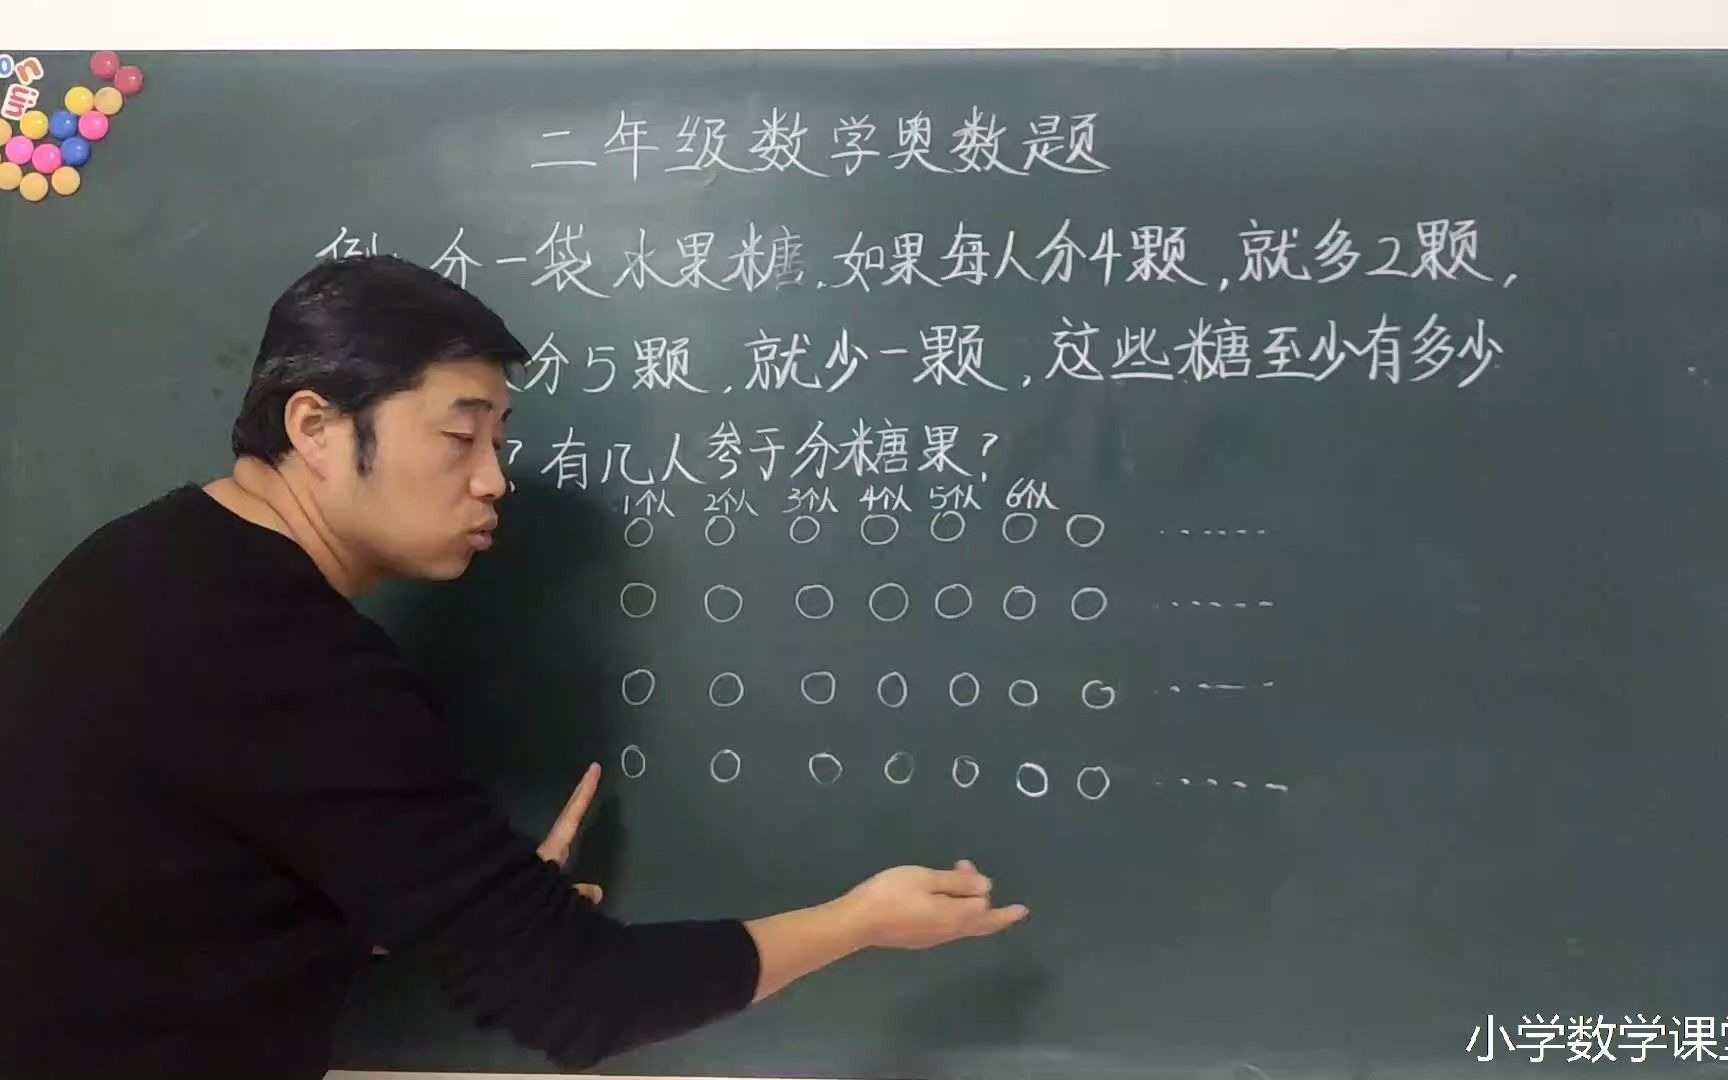 二年级数学奥数题
例:分一袋水果糖,如果每人分4颗,就多2颗,
分5颗,就少一颗,这些糖至少有多少
?有几人参于分糖果?
1个人 2个人 3个人 4个人 5个人 6个人
小学数学课堂